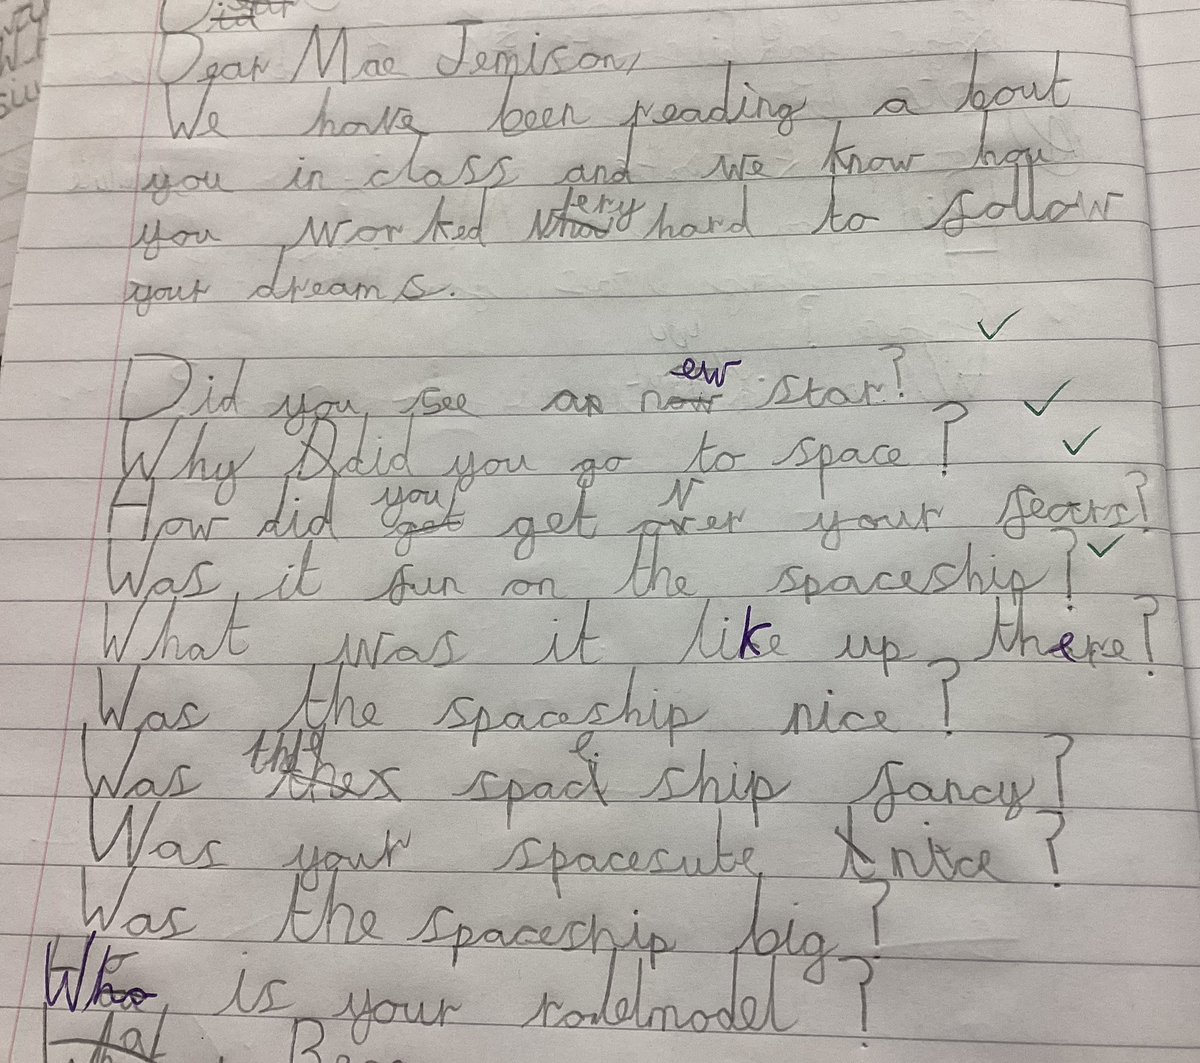 Dear Mae Jemison,
We have been reading a bout
you in class and we know how
you worked very hard to follow
your dreams.
Did you see an new star?
Why did you go to space?
How did you get over your fears?
Was it fun on the spaceship?
What was it like up there?
Was the spaceship nice?
Was the space ship fancy?
Was your spacesute nice?
Was the spaceship big?
Who is your rolelmodel?